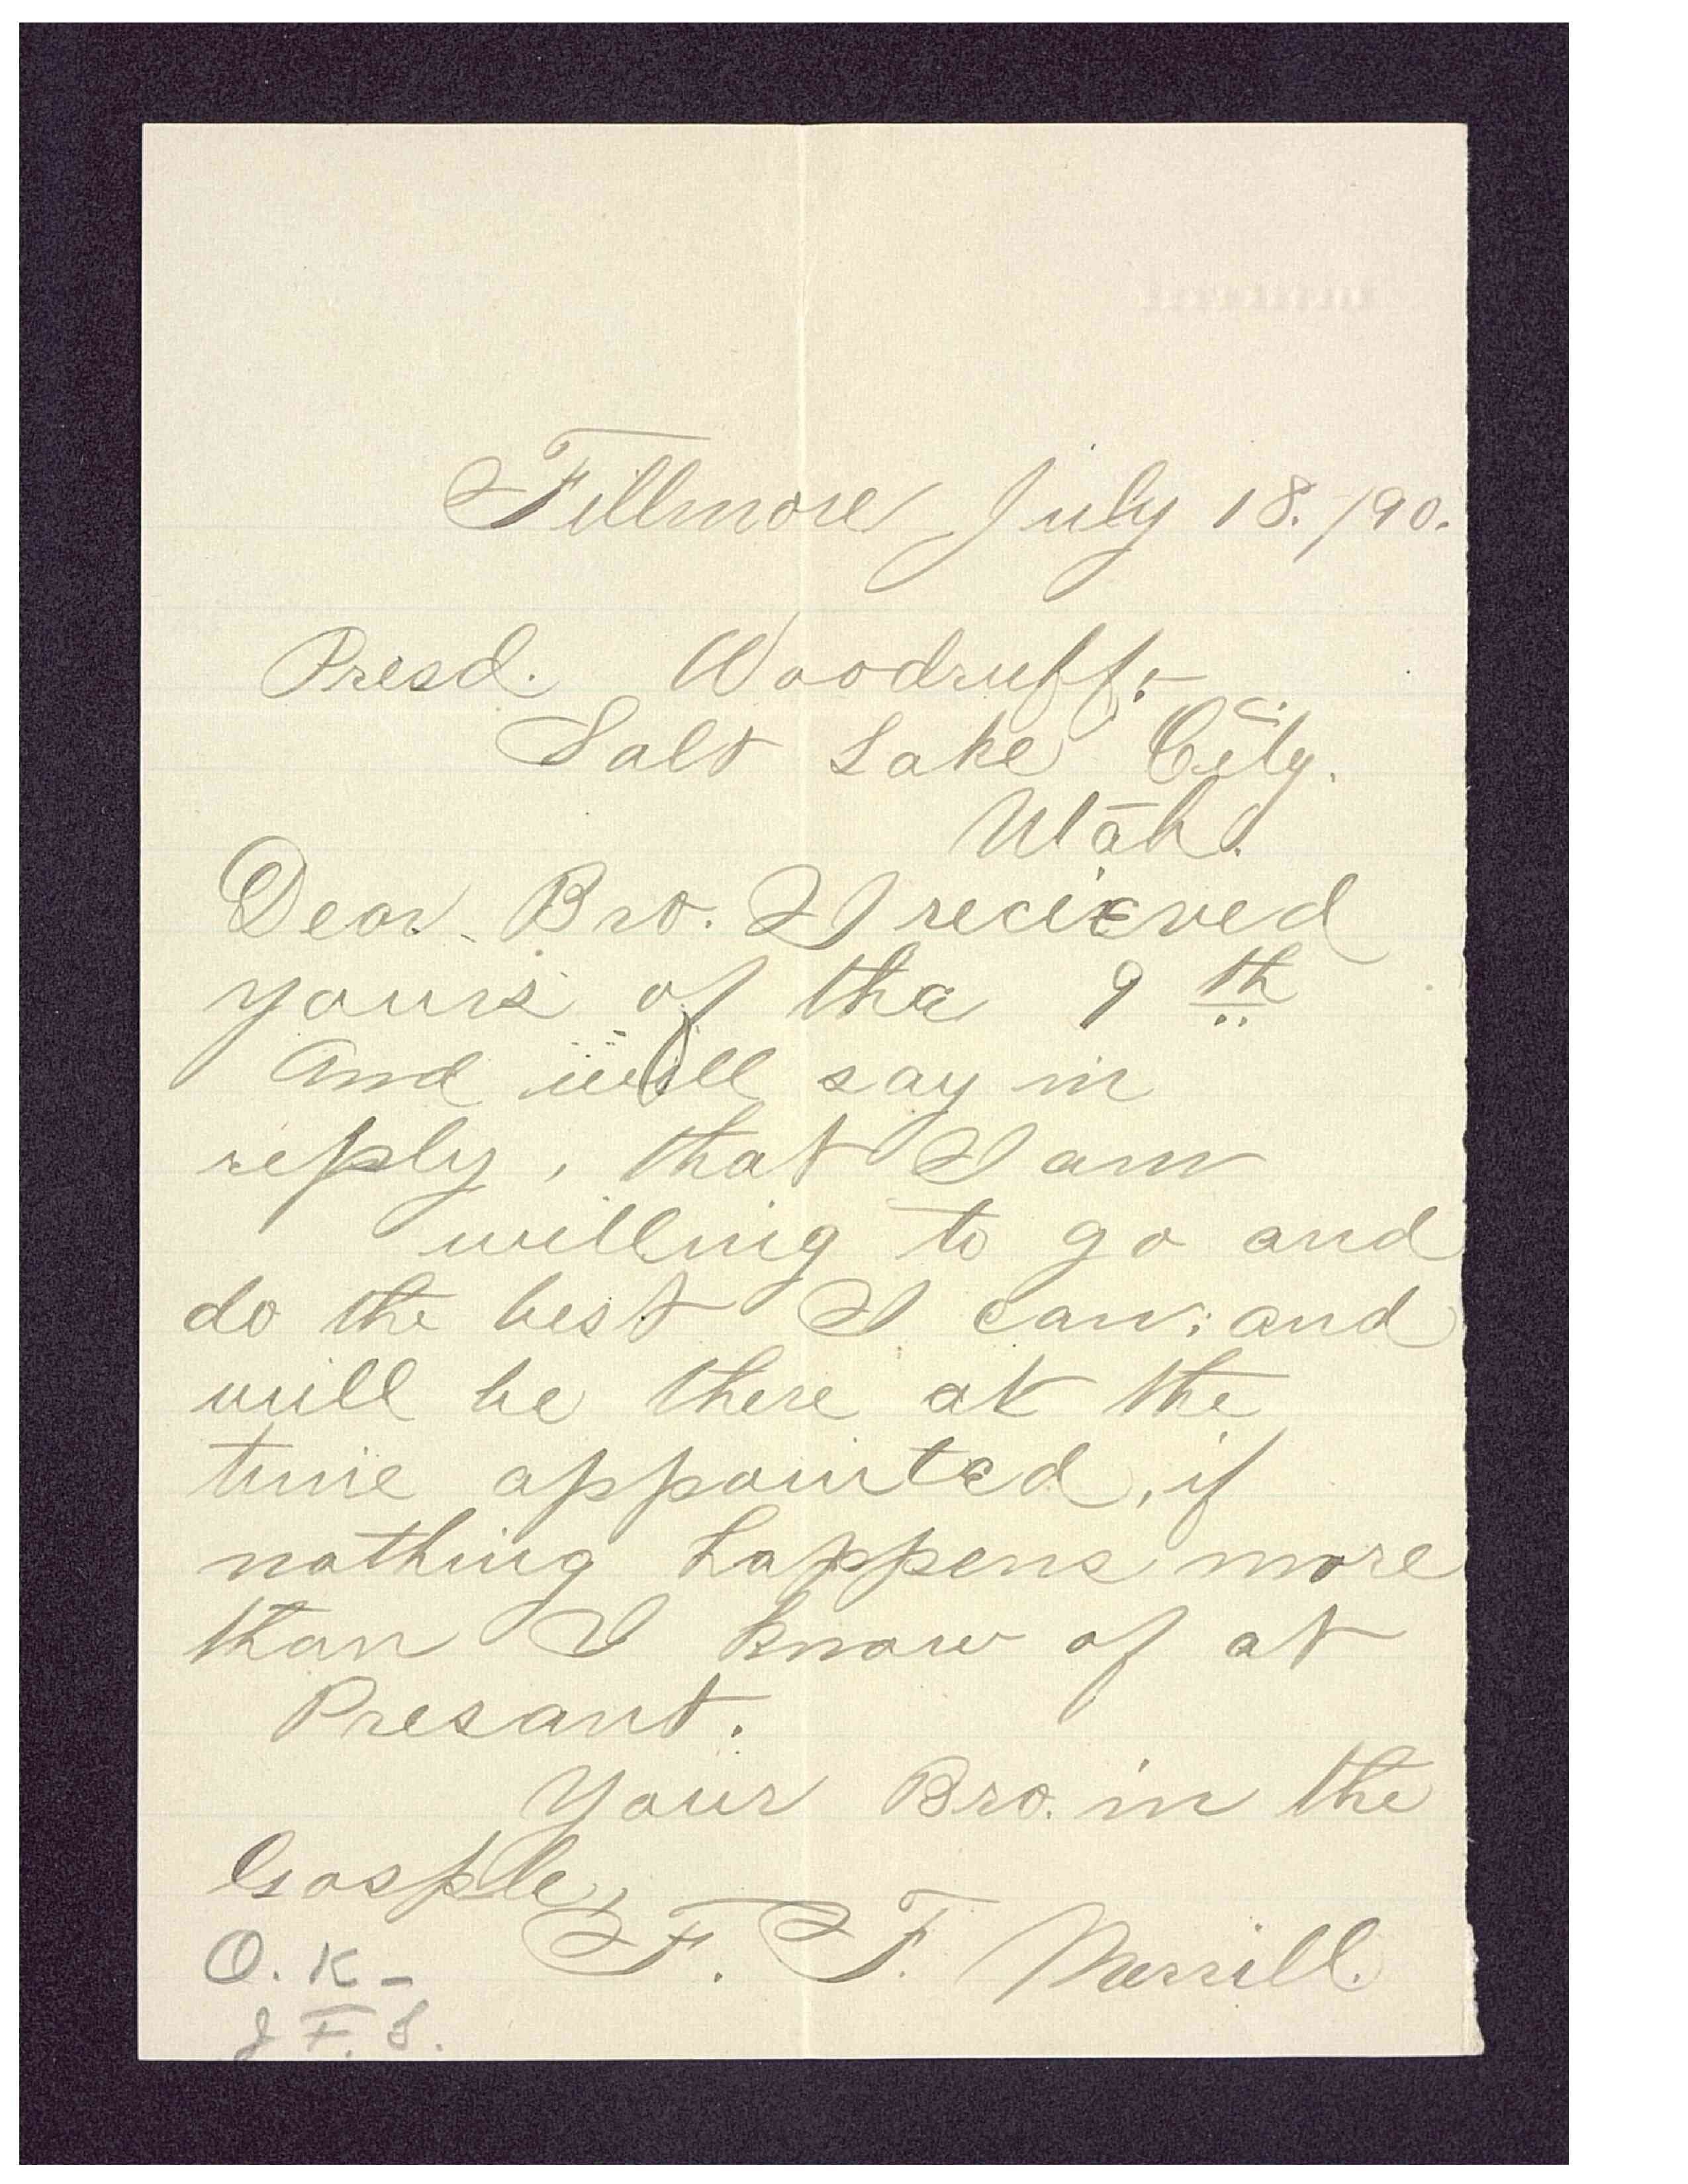 Fillmore July 18. /90.
Presd. Woodruff:-
Salt Lake City.
Utah.
Dear Bro. I recieved
yours of the 9th
And will say in
reply, that I am
willing to go and
do the best I can; and
will be there at the
time appointed, if
nothing happens more
than I know of at
Presant.
Your Bro. in the
Gosple,
F. F. Merrill.
O.K-
J F. S.